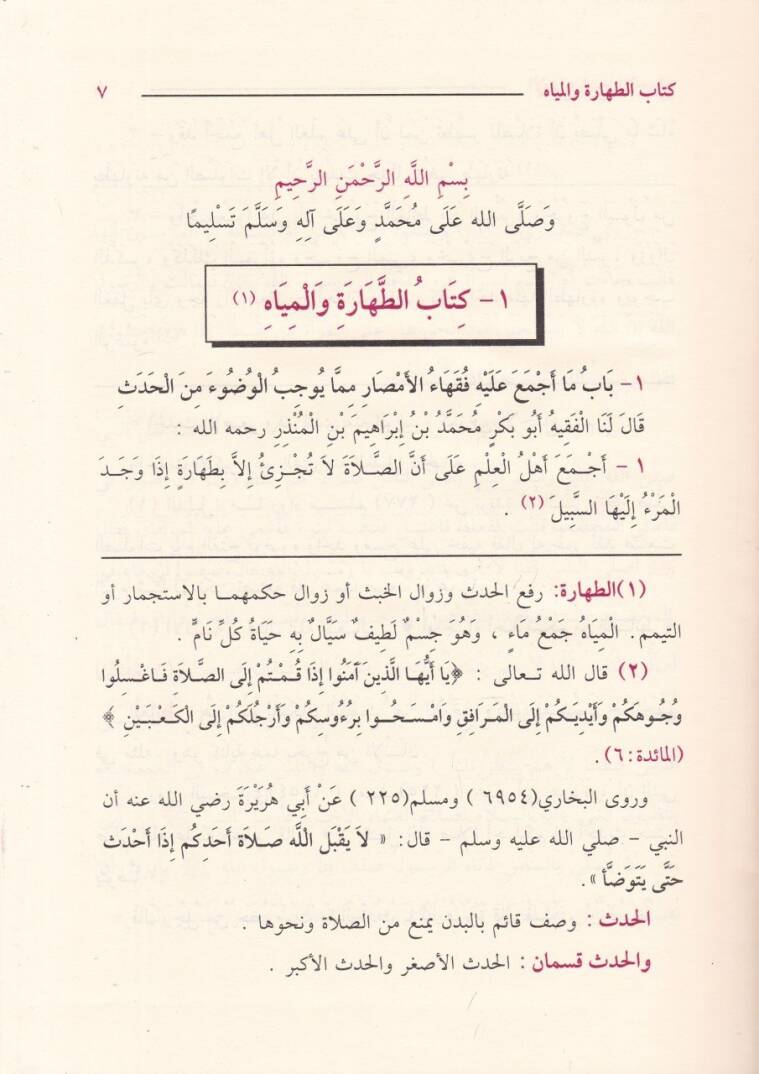 كتاب الطهارة والمياه ٧
بِسْمِ اللَّهِ الرَّحْمَنِ الرَّحِيمِ
وَصَلَّى الله عَلَى مُحَمَّدٍ وَعَلَى آلِهِ وَسَلَّمَ تَسْلِيمًا
١- كِتَابُ الطَّهَارَةِ وَالْمِيَاهِ (١)
١- بَابُ مَا أَجْمَعَ عَلَيْهِ فُقَهَاءُ الأَمْصَارِ مِمَّا يُوجِبُ الْوُضُوءَ مِنَ الْحَدَثِ
قَالَ لَنَا الْفَقِيهُ أَبُو بَكْرٍ مُحَمَّدُ بْنُ إِبْرَاهِيمَ بْنِ الْمُنْذِرِ رحمه الله :
١ - أَجْمَعَ أَهْلُ الْعِلْمِ عَلَى أَنَّ الصَّلاَةَ لاَ تُجْزِئُ إِلاَّ بِطَهَارَةٍ إِذَا وَجَدَ
الْمَرْءُ إِلَيْهَا السَّبِيلَ (٢) .
(١)الطهارة: رفع الحدث وزوال الخبث أو زوال حكمهما بالاستجمار أو
التيمم. الْمِيَاهُ جَمْعُ مَاءٍ ، وَهُوَ جِسْمٌ لَطِيفٌ سَيَّالٌ بِهِ حَيَاةُ كُلِّ نَامٍّ .
(٢) قال الله تعالى : ﴿يَا أَيُّهَا الَّذِينَ آمَنُوا إِذَا قُمْتُمْ إِلَى الصَّلاَةِ فَاغْسِلُوا
وُجُوهَكُمْ وَأَيْدِيَكُمْ إِلَى الْمَرَافِقِ وَامْسَحُوا بِرُءُوسِكُمْ وَأَرْجُلَكُمْ إِلَى الْكَعْبَيْنِ ﴾
(المائدة:٦).
وروى البخاري(٦٩٥٤ ) ومسلم(٢٢٥ ) عَنْ أَبِي هُرَيْرَةَ رضي الله عنه أن
النبي - صلي الله عليه وسلم - قال: « لاَ يَقْبَل اللَّه صَلاَةَ أَحَدِكُم إِذَا أَحْدَثَ
حَتَّى يَتَوَضَّأ ».
الحدث : وصف قائم بالبدن يمنع من الصلاة ونحوها .
والحدث قسمان : الحدث الأصغر والحدث الأكبر .